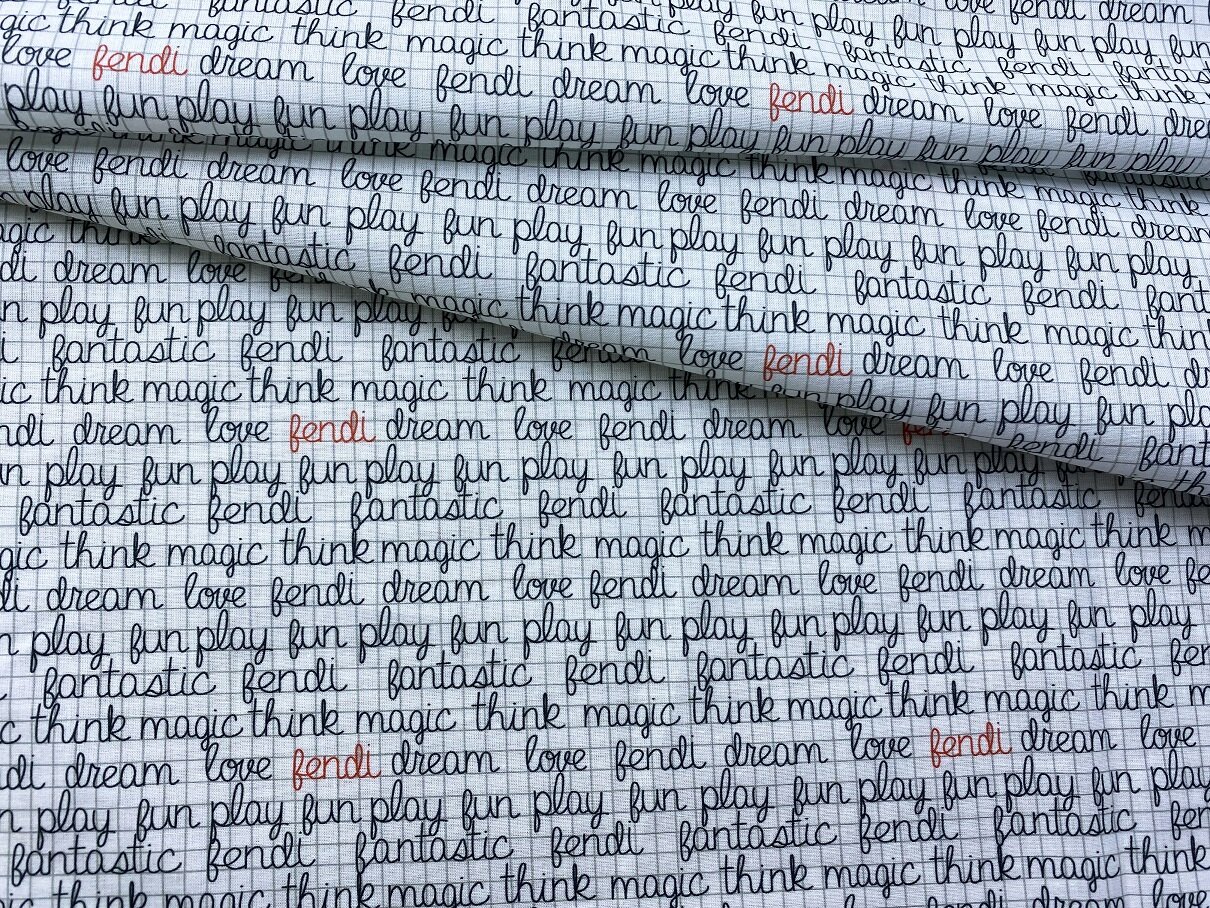 fantastic fendi fantastic play fun play fun play fun
gic think magic think magic think magic think magic think magic think
love fendi dream love fendi dream love fendi dream love fendi dre
play fun play fun play fun play fun play fun play fun play fun play
magic think magic think magic think magic think
love fendi dream love fendi dream love fendi dream love fendi dream
play fun play fun play fun play fun play fun play fun play
fantastic fendi fantastic fendi fantastic fendi fant
magic think magic think magic think magic thin
dream love fendi dream love fendi dr
fun play fun play fun pla
fendi fant
gic think
di dream love
n play fun play fun play
i fantastic fendi fantastic
ic think magic think magic think magic think
ndi dream love fendi dream love fendi dream love
n play fun play fun play fun play fun play fun play fun play
fantastic fendi fantastic fendi fantastic fendi fantastic
gic think magic think magic think magic think magic think magic think m
di dream love fendi dream love fendi dream love fendi dream love fe
n play fun play fun play fun play fun play fun play fun play
fantastic fendi fantastic fendi fantastic fendi fantastic fen
c think magic think magic think magic think magic think magic think m
di dream love fendi dream love fendi dream love fendi dream love
n play fun play fun play fun play fun play fun play fun play fun play
fantastic fendi fantastic fendi fantastic fendi fantastic fen
ic think magic think magic think magic think magic think magic think
fendi dream love